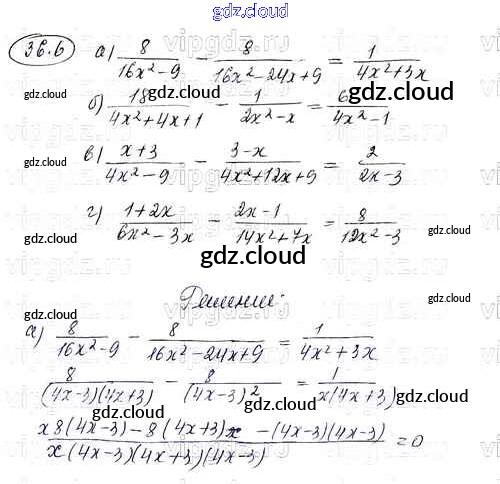 gdz.cloud
36.6 а) 8/(16x²-9) - 8/(16x²-24x+9) = 1/(4x²+3x)
gdz.cloud gdz.cloud gdz.cloud
б) 18/(4x²+4x+1) - 1/(2x²-x) = 6/(4x²-1)
gdz.cloud
в) (x+3)/(4x²-9) - (3-x)/(4x²+12x+9) = 2/(2x-3)
gdz.cloud gdz.cloud
г) (1+2x)/(6x²-3x) - (2x-1)/(14x²+7x) = 8/(12x²-3)
gdz.cloud gdz.cloud
gdz.cloud
Решение:
gdz.cloud gdz.cloud
а) 8/(16x²-9) - 8/(16x²-24x+9) = 1/(4x²+3x)
8/((4x-3)(4x+3)) - 8/(4x-3)² = 1/(x(4x+3))
gdz.cloud gdz.cloud gdz.cloud
(x8(4x-3)-8(4x+3)x-(4x-3)(4x-3))/(x(4x-3)(4x+3)(4x-3)) = 0
gdz.cloud